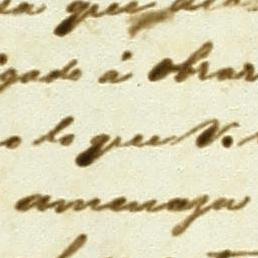 que
gado á obrar
o lo que V.
amenaza